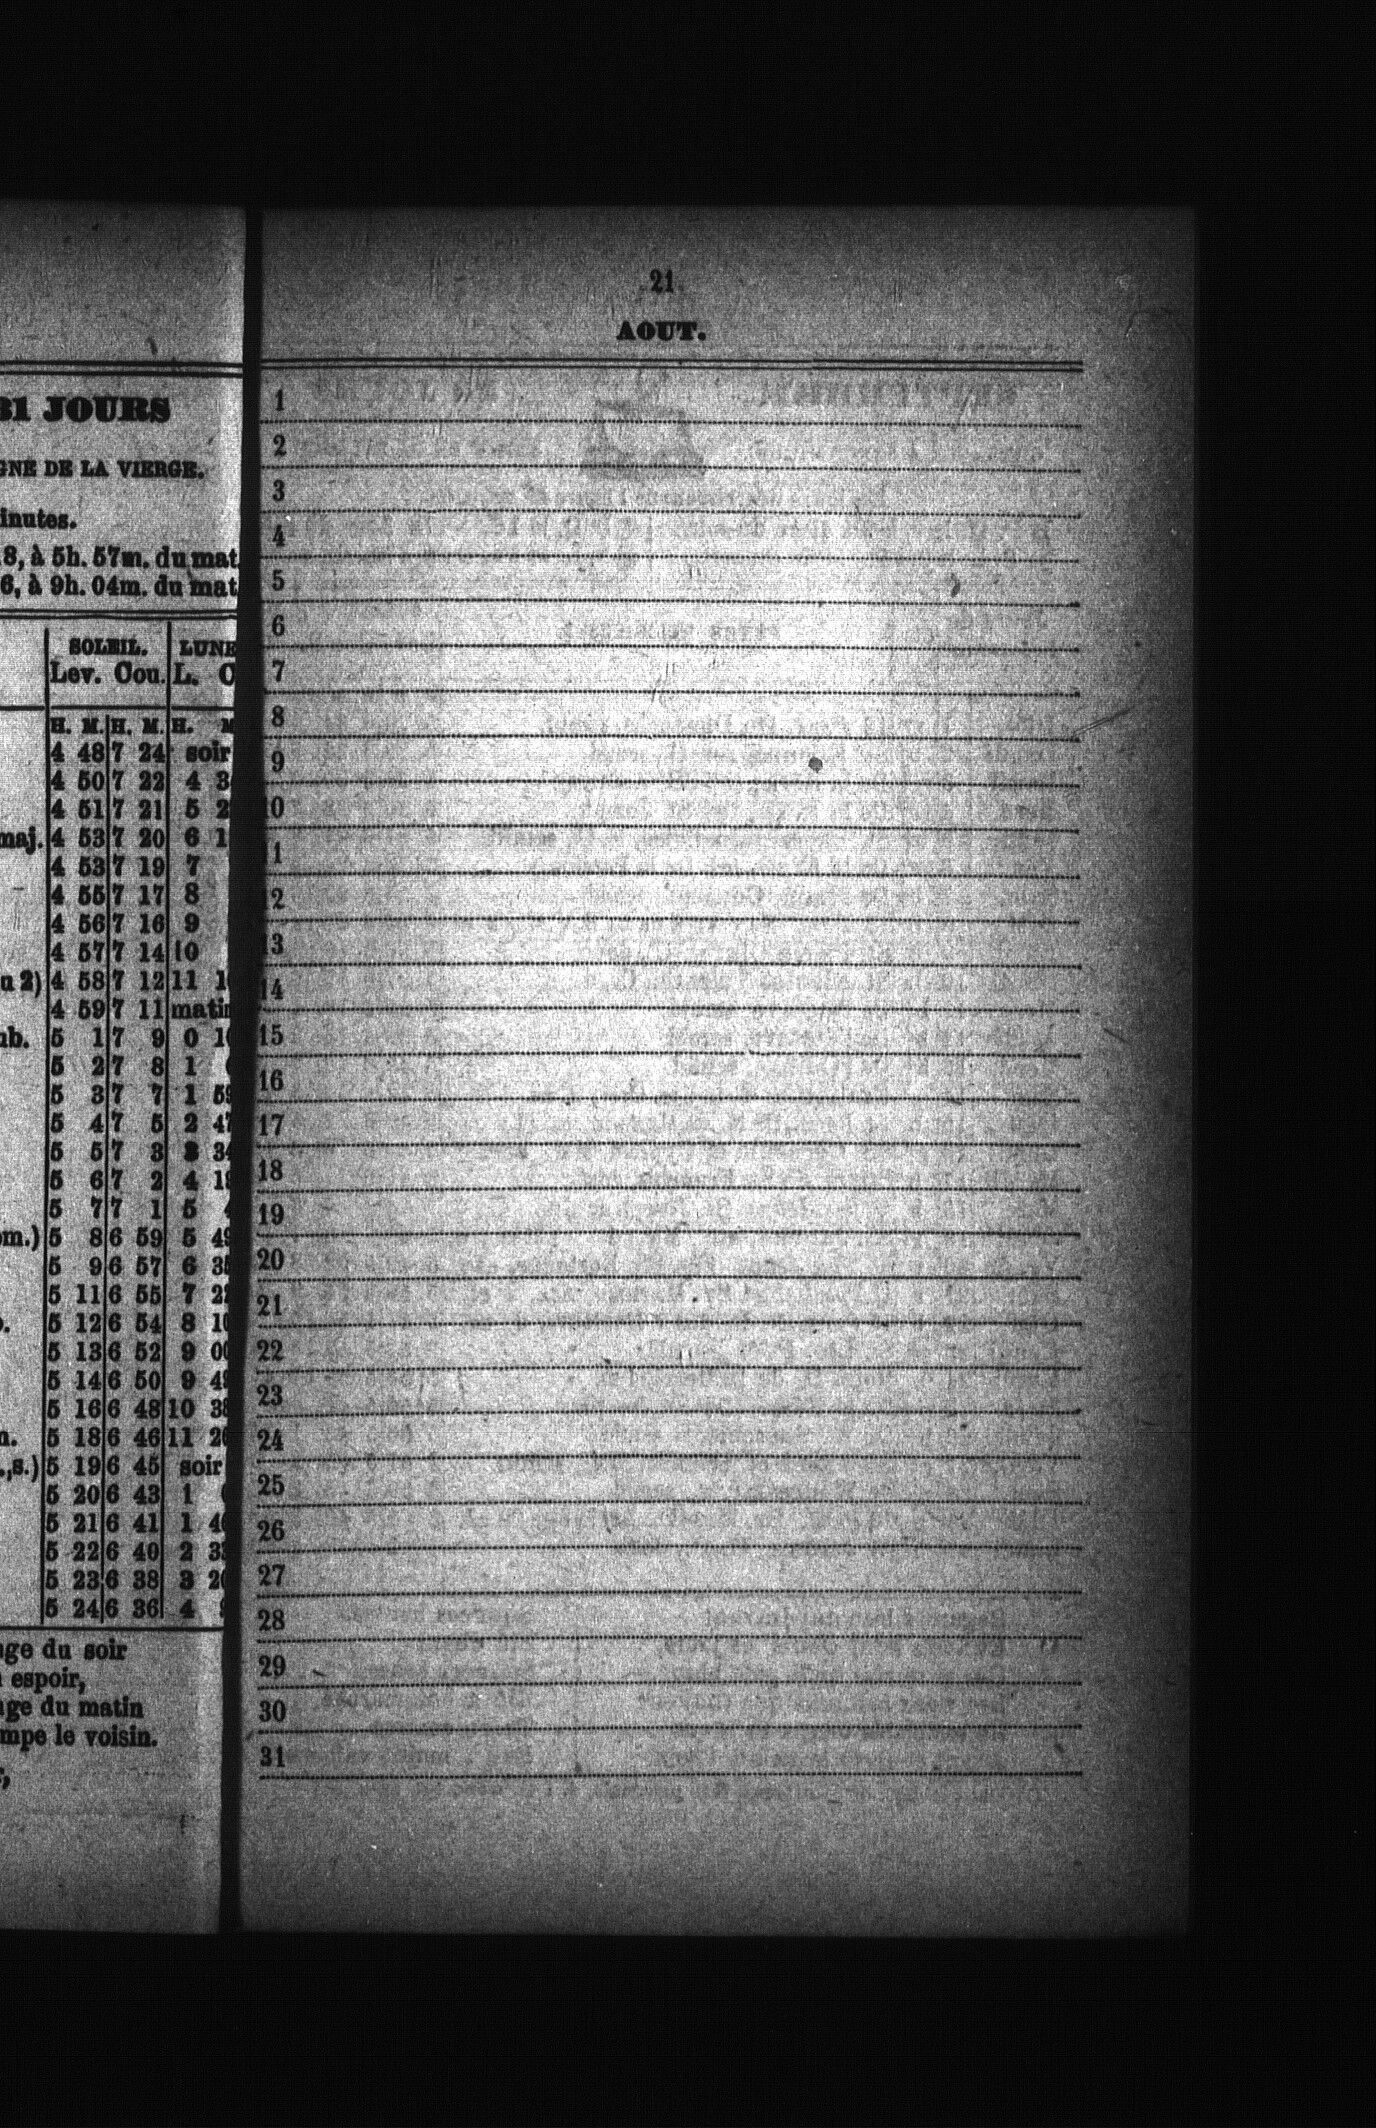 31 JOURS
GNE DE LA VIERGE.
inutes.
8, à 5h. 57m. du mat.
6, à 9h. 04m. du mat
SOLEIL. LUNE
Lev. Cou. L. C
H. M. H. M. H. M
4 48 7 24 soir
4 50 7 22 4 3
4 51 7 21 5 2
maj. 4 53 7 20 6 1
4 53 7 19 7
4 55 7 17 8
4 56 7 16 9
4 57 7 14 10
u 2) 4 58 7 12 11 1
4 59 7 11 matin
nb. 5 1 7 9 0 10
5 2 7 8 1
5 3 7 7 1 59
5 4 7 5 2 47
5 5 7 3 3 34
5 6 7 2 4 19
5 7 7 1 5 4
om.) 5 8 6 59 5 49
5 9 6 57 6 35
5 11 6 55 7 22
5 12 6 54 8 10
5 13 6 52 9 00
5 14 6 50 9 49
5 16 6 48 10 38
n. 5 18 6 46 11 26
.,s.) 5 19 6 45 soir
5 20 6 43 1
5 21 6 41 1 46
5 22 6 40 2 33
5 23 6 38 3 20
5 24 6 36 4
ge du soir
espoir,
ge du matin
mpe le voisin.
21
AOUT.
1
2
3
4
5
6
7
8
9
10
11
12
13
14
15
16
17
18
19
20
21
22
23
24
25
26
27
28
29
30
31